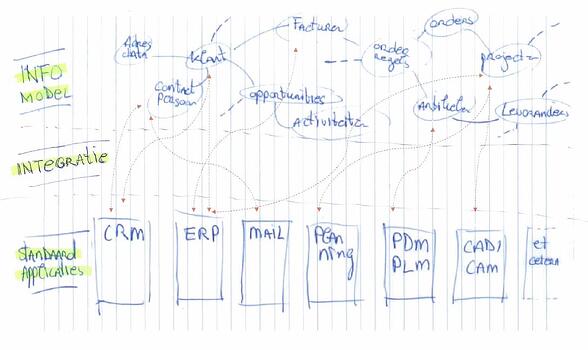 INFO
MODEL
Adres
data
klant
Contact
Persoon
Facturen
opportunities
Activiteiten
order
regels
orders
projecten
Artikelen
Leveranciers
INTEGRATIE
STANDAARD
APPLICATIES
CRM
ERP
MAIL
Plan
ning
PDM
PLM
CAD/
CAM
et
cetera